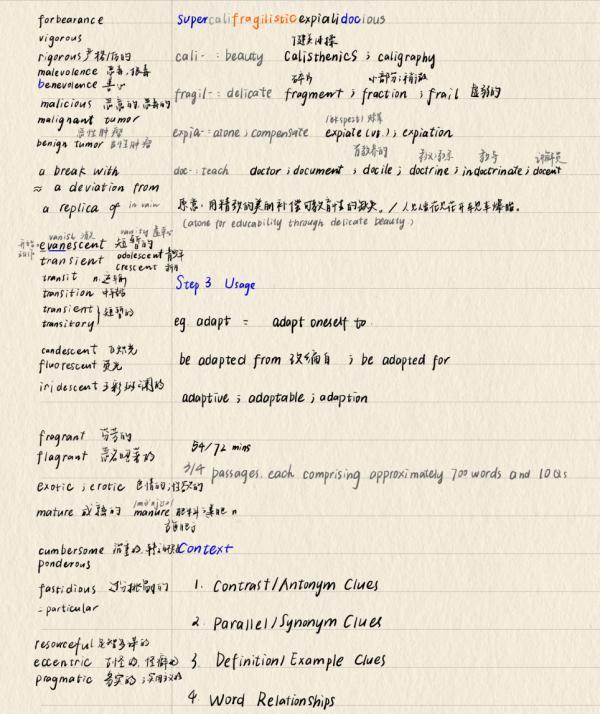 forbearance
vigorous
rigorous 严格的
malevolence 恶毒,狠毒
benevolence 善心
malicious 恶意的,恶毒的
malignant tumor
恶性肿瘤
benign tumor 良性肿瘤
a break with
≈ a deviation from
a replica of in vain
vanish 消失 vanity 虚荣心
evanescent 短暂的
transient adolescent 青少年
crescent 新月
transit n.运输
transition 转换
transient } 短暂的
transitory
candescent 白炽光
fluorescent 荧光
iridescent 五彩斑斓的
fragrant 芬芳的
flagrant 恶名昭著的
exotic ; erotic 色情的;性欲的
mature 成熟的 manure 肥料;粪肥 n
施肥 v
cumbersome
ponderous
fastidious 过分挑剔的
= particular
resourceful 足智多谋的
eccentric 古怪的,怪癖的
pragmatic 务实的;实用主义的
Supercalifragilisticexpialidocious
健美体操
cali- : beauty Calisthenics ; caligraphy
碎片 小部分;稍微
fragil- : delicate fragment ; fraction ; frail 虚弱的
expia- : atone ; compensate expiate (vs.) ; expiation
doc- : teach doctor ; document ; docile ; doctrine ; indoctrinate ; docent
原意:用精致的美丽补偿可教育性的缺失。/ 人见人爱花见花开车见车爆胎。
(atone for educability through delicate beauty)
Step 3 Usage
eg. adapt = adapt oneself to
be adapted from 改编自 ; be adapted for
adaptive ; adaptable ; adaption
54/72 mins
3/4 passages, each comprising approximately 700 words and 10 Qs
Context
1. Contrast/Antonym Clues
2. Parallel/Synonym Clues
3. Definition/Example Clues
4. Word Relationships